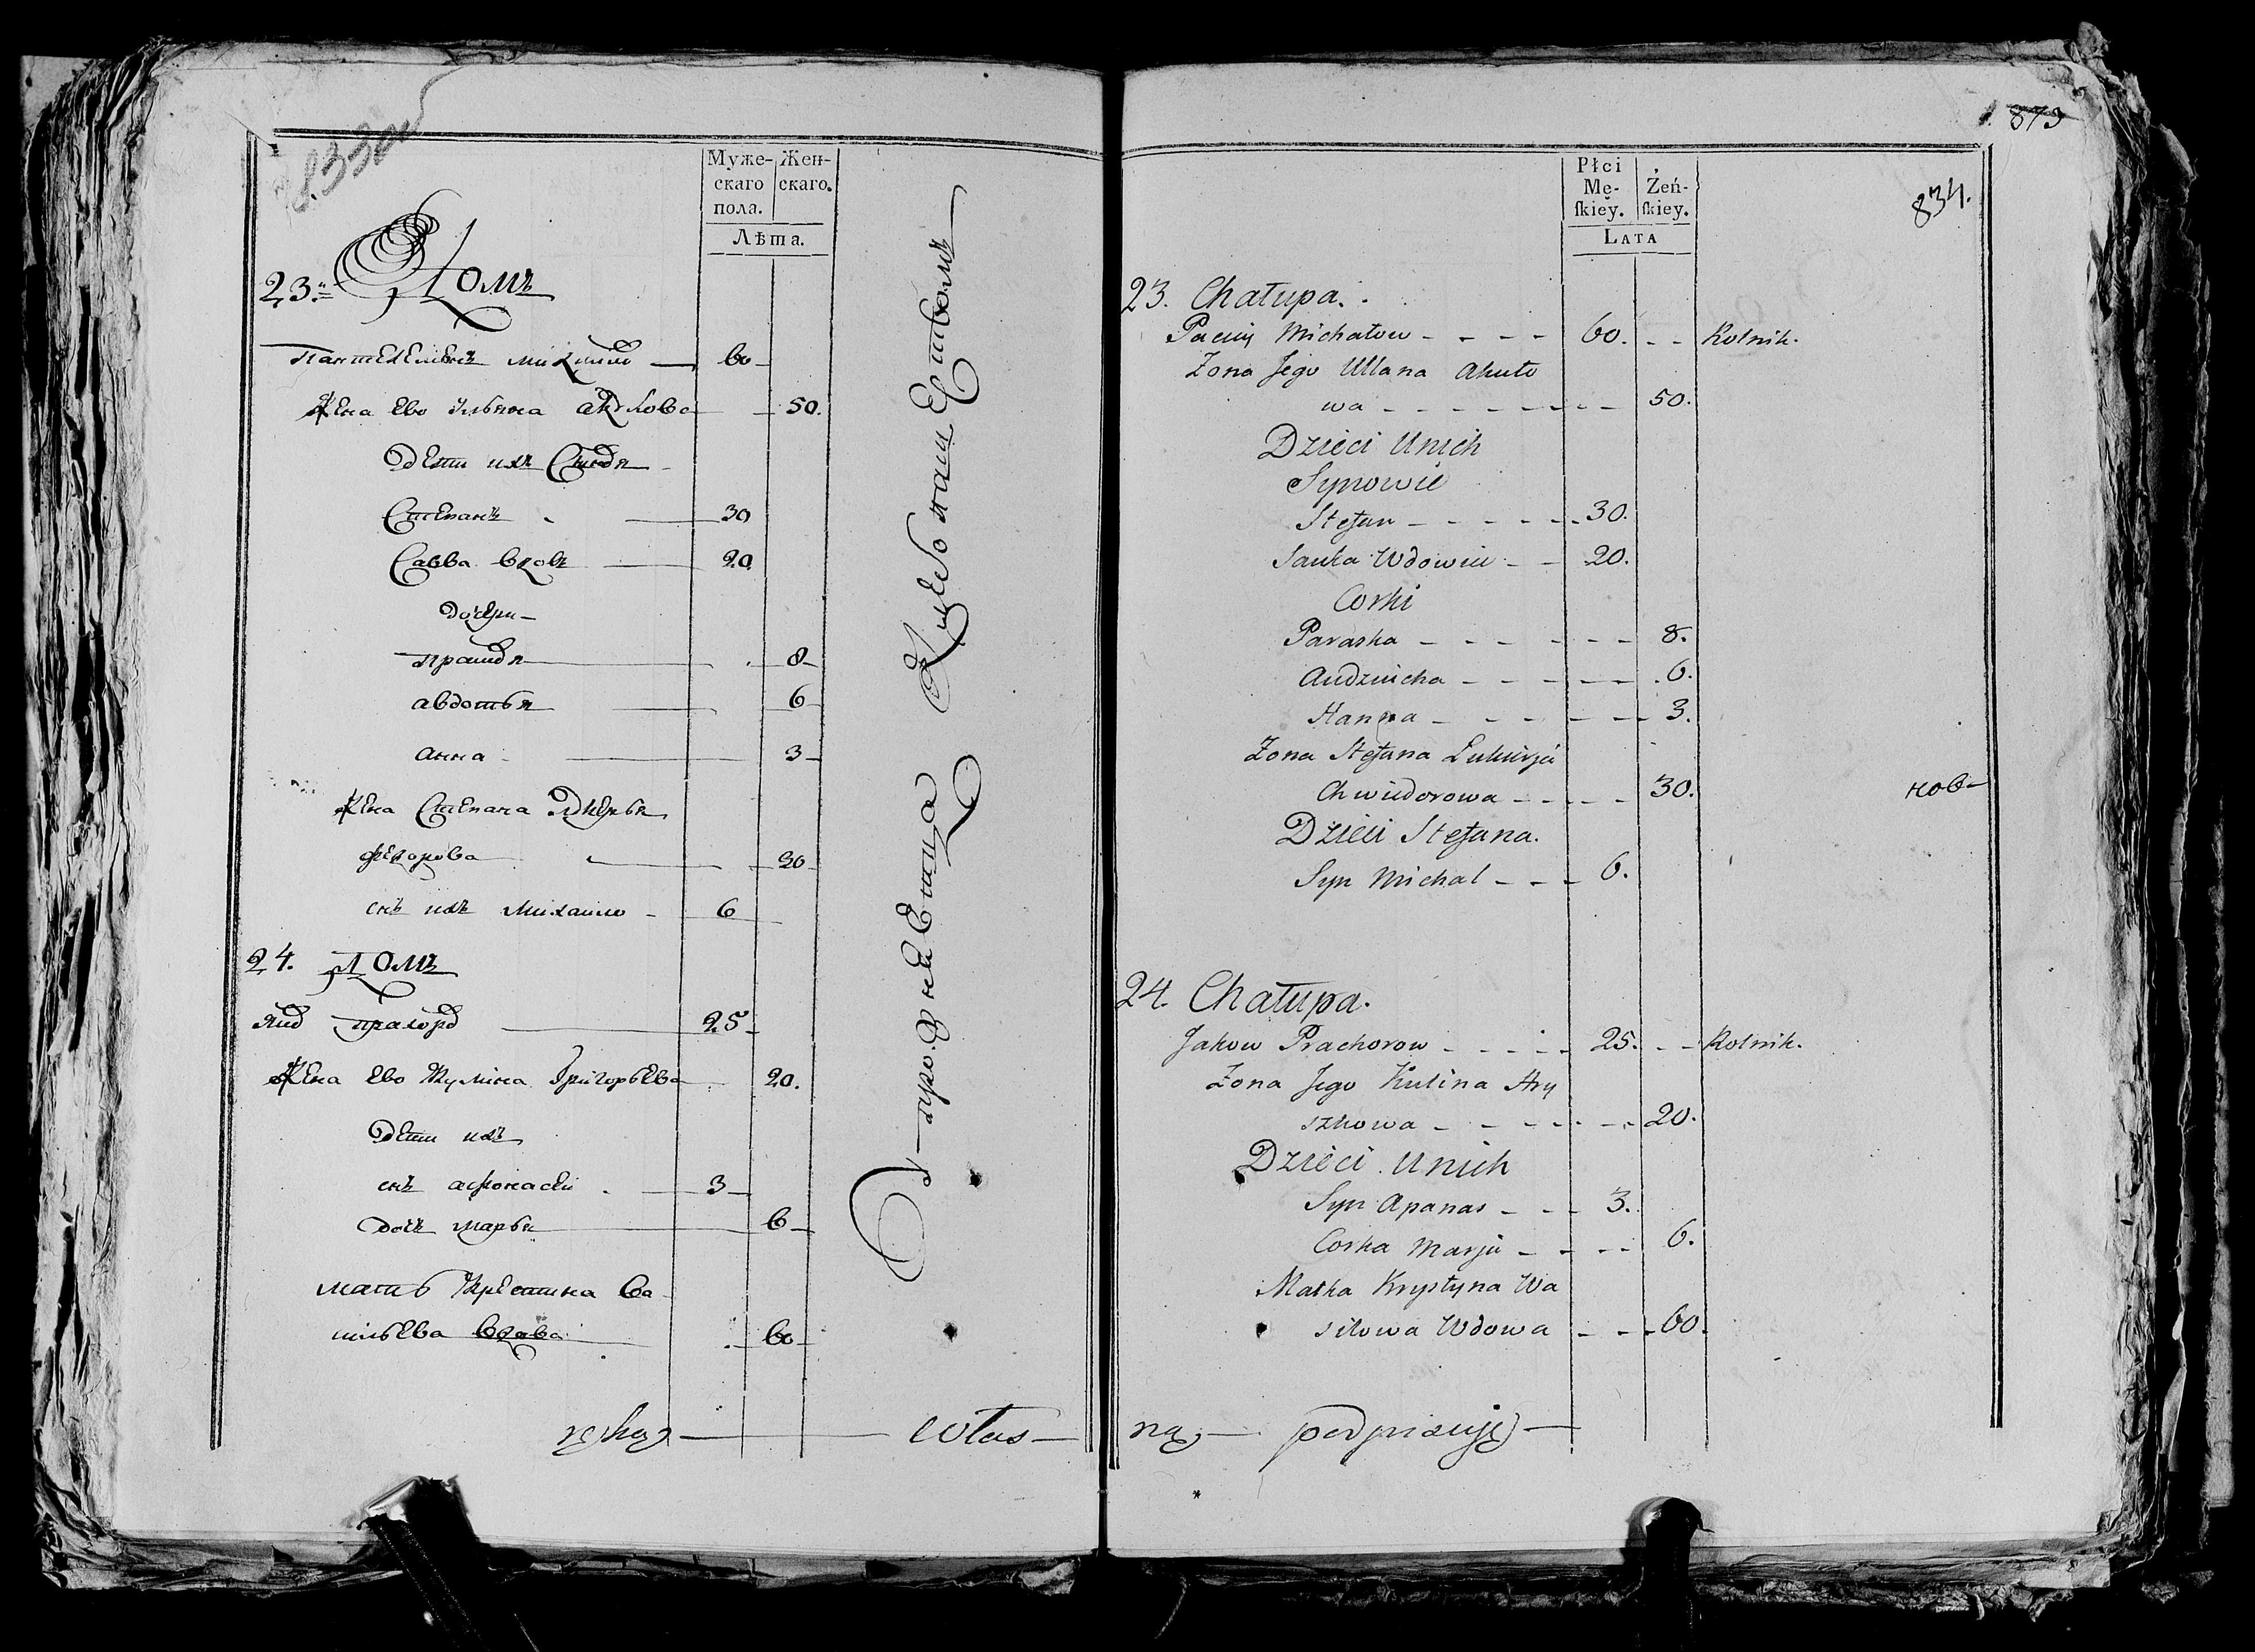 833об
Муже-
скаго
пола.
Жен-
скаго.
Лѣта.
23. Домъ
Пантелемонъ Михайло — 60
Жена Ево Ульяна Акулова — 50.
Дети ихъ
Степанъ — 30
Савва вдовъ — 20
дочери —
8
авдотья — 6
анна — 3
Жена Степана
Федорова — 30
снъ ихъ Михайло — 6
24. Домъ
25
Жена Ево Кулина Григорьева — 20.
Дети ихъ
снъ афонасей — 3
дочь марья — 6
мать Крестина Ва
сильева вдова — 60
ręką — włas —
873
834.
Płci
Mę-
ſkiey.
Żeń-
ſkiey.
LATA
23. Chałupa.
Michałow - - - - 60. - - Rolnik.
Zona Jego Ullana Akuło
wa - - - - - - - - 50.
Dzieci Unich
Synowie
Stefan - - - - - - 30.
Sauka Wdowiec - - 20.
Corki
Paraska - - - - - - - 8.
Audziucha - - - - - - 6.
Hanna - - - - - - 3.
Zona Stefana Łukierja
Chwiedorowa - - - - - 30.
нов-
Dzieci Stefana.
Syn Michał - - - 6.
24. Chałupa.
Jakow Prachorow - - - - - 25. - - Rolnik.
Zona Jego Kulina Hry
szkowa - - - - - - - 20.
Dzieci Unich
Syn Apanas - - - 3.
Corka Marja - - - - 6.
Matka Krystyna Wa
silowa Wdowa - - - 60.
ną — podpisuję —